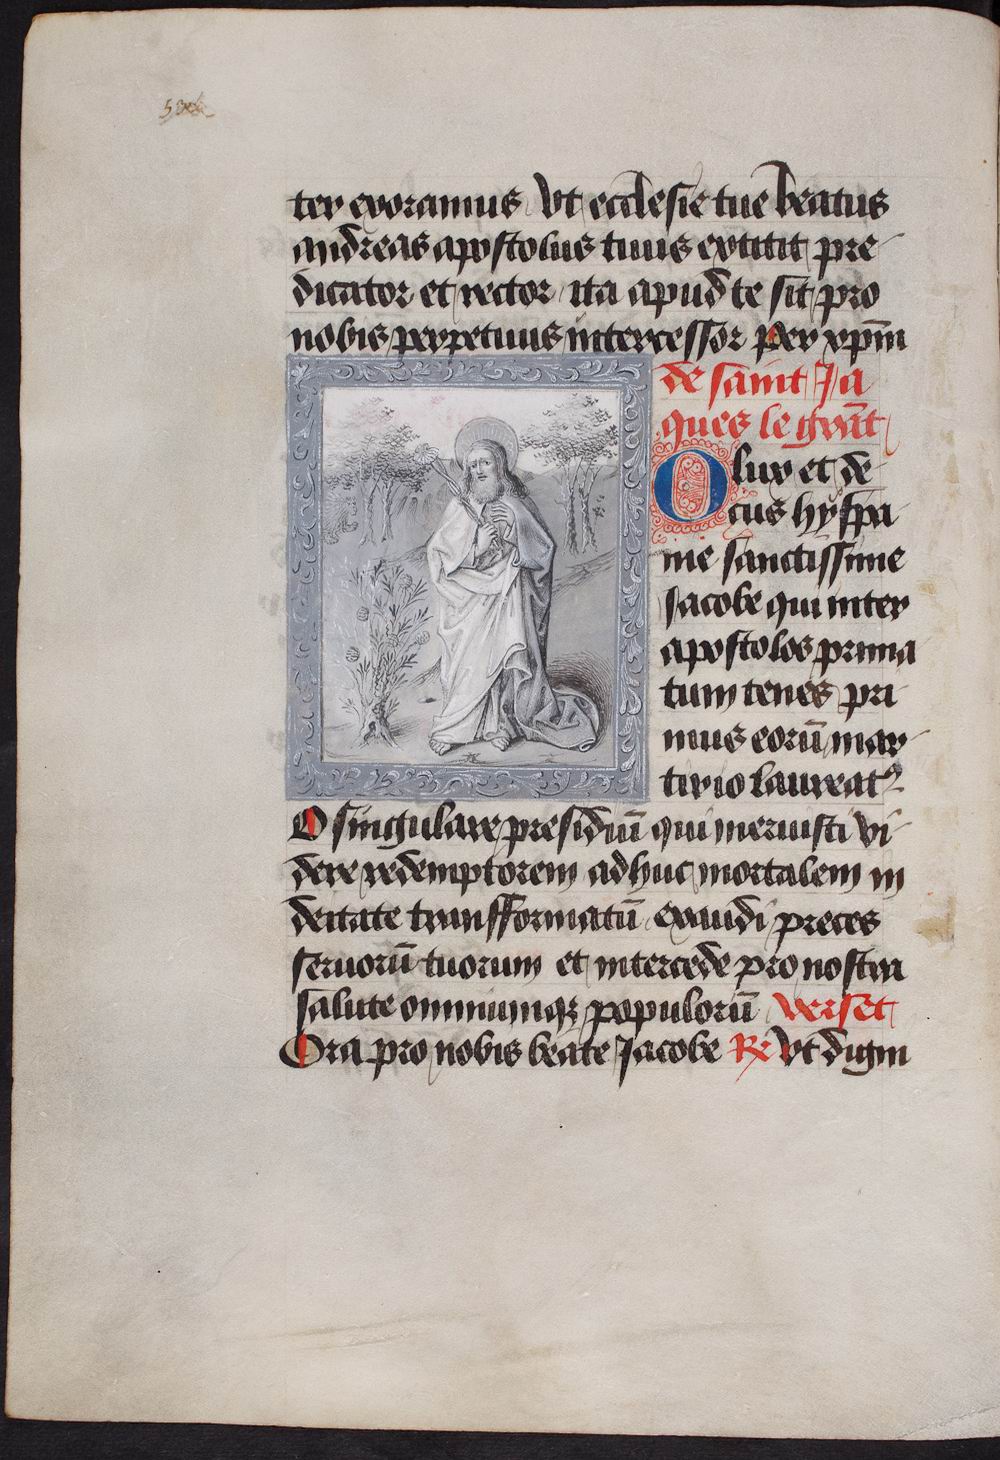 ter exoramus Vt ecclesie tue beatus
andreas apostolus tuus extitit pre
dicator et rector ita apud te sit pro
nobis perpetuus intercessor per xpm̄
de saint Ja
ques le grāt
O lux et de
cus hyspa
nie sanctissime
Jacobe qui inter
apostolos prima
tum tenes pri
mus eorū mar
tirio laureatꝰ
O singulare presidiū qui meruisti vi
dere redemptorem adhuc mortalem in
deitate transfformatū exaudi preces
seruorū tuorum et intercede pro nostra
salute omniumqꝫ populorū verset
Ora pro nobis beate Jacobe Re Vt digni